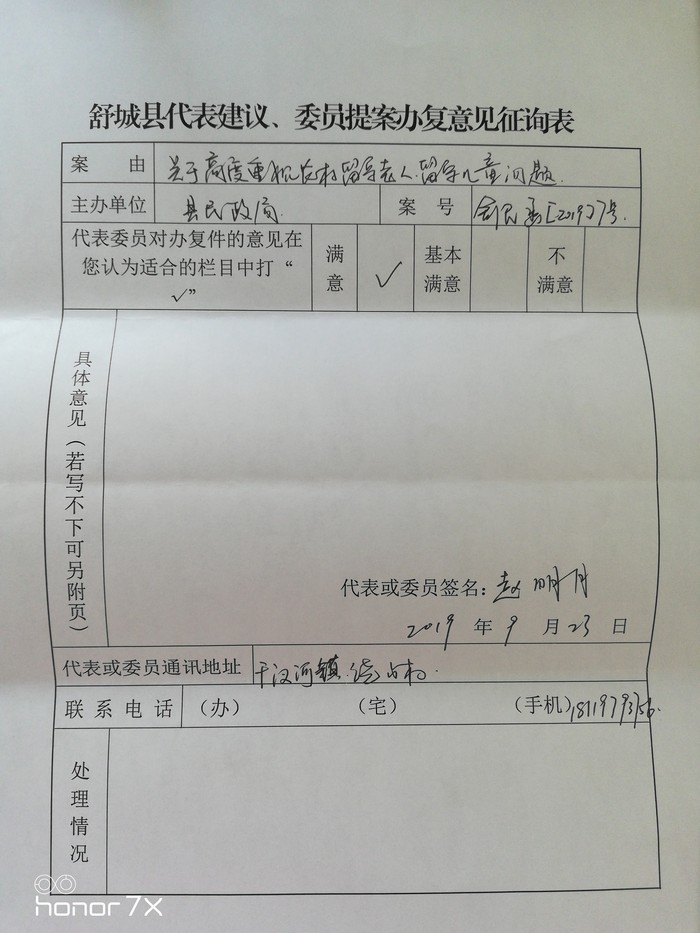 舒城县代表建议、委员提案办复意见征询表
案 由 关于高度重视农村留守老人、留守儿童问题.
主办单位 县民政局. 案 号 舒民 [2019]7号.
代表委员对办复件的意见在 满 ✓ 基本 不
您认为适合的栏目中打“ 意 满意 满意
✓”
具体意见（若写不下可另附页）
代表或委员签名：赵明月
2019 年 9 月 23 日
代表或委员通讯地址 干汊河镇 村.
联系电话 （办） （宅） （手机）18119793156.
处理情况
honor 7X